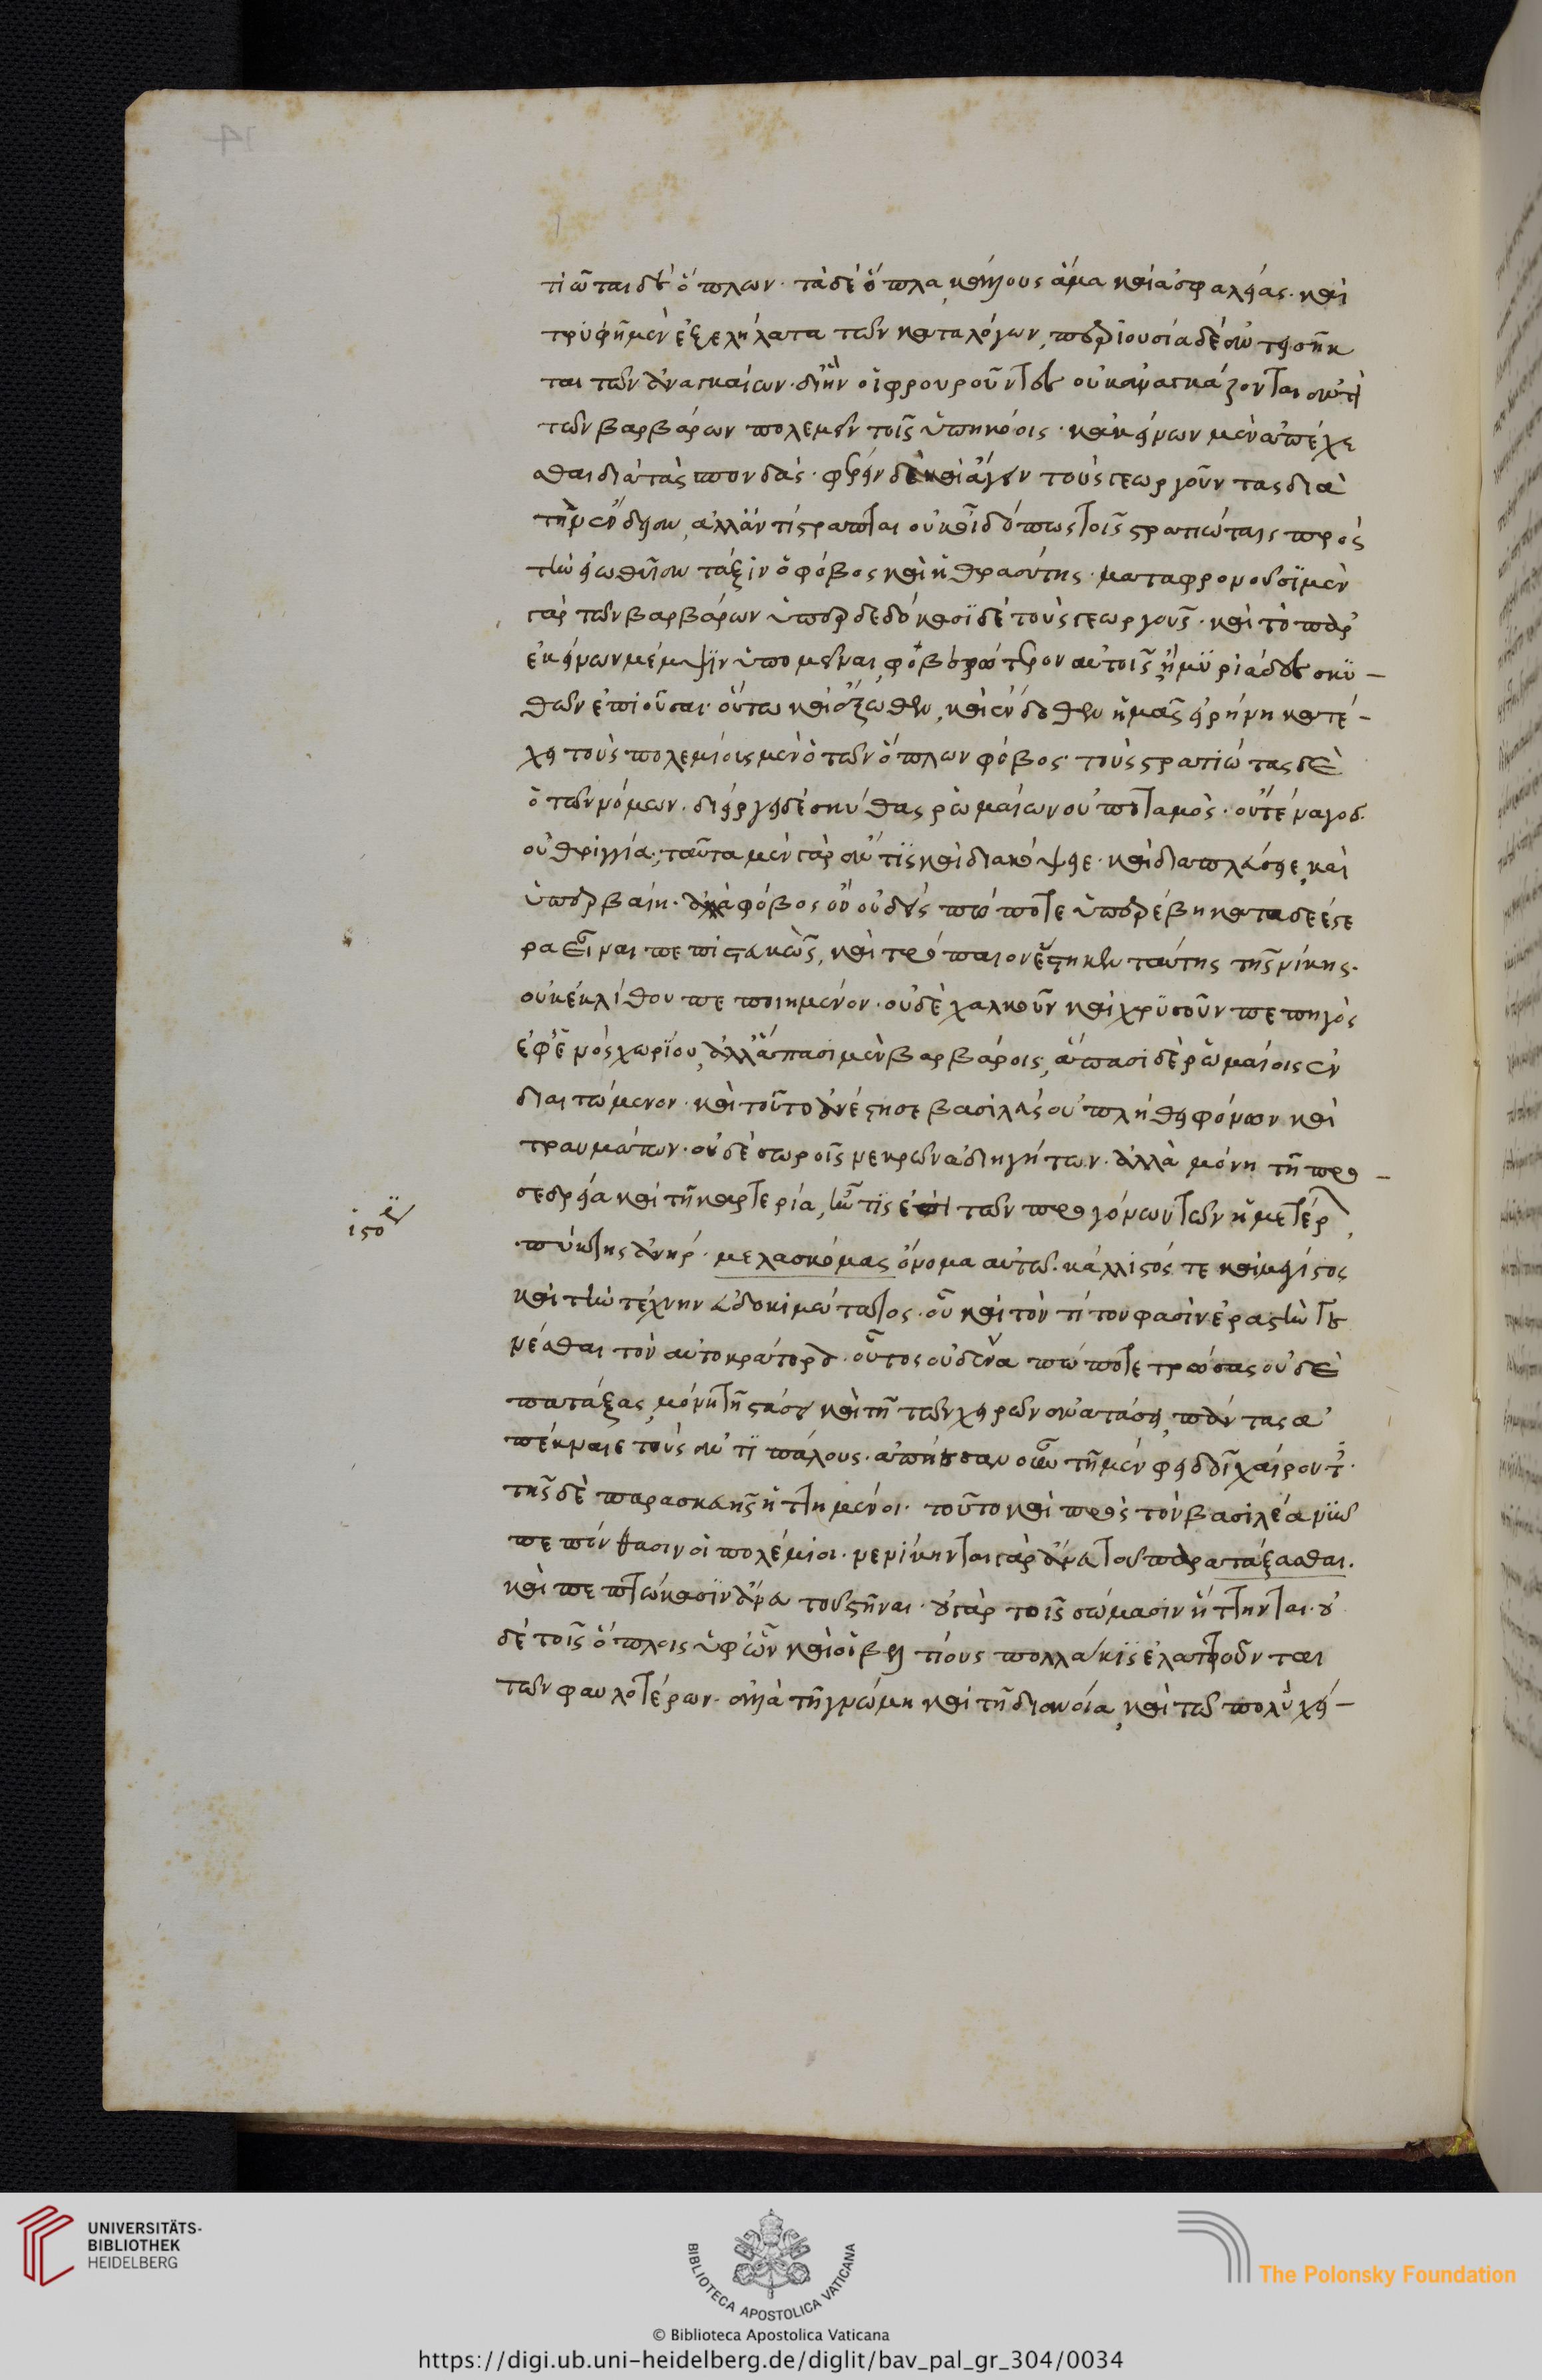 τιῶται δὲ ὅπλων· τὰ δὲ ὅπλα, κάλλους ἅμα καὶ ἀσφαλείας· καὶ
τρυφὴ μὲν ἐξελήλαται τῶν καταλόγων, περιουσία δὲ
ται τῶν ἀναγκαίων· δι' ἣν οἱ φρουροῦντες οὐκ ἀναγκάζονται ἀντὶ
τῶν βαρβάρων πολεμεῖν τοῖς ὑπηκόοις· κἀκείνων μὲν ἀπέχε
σθαι διὰ τὰς σπονδάς· φέρειν δὲ καὶ ἄγειν τοὺς γεωργοῦντας διὰ
τὴν ἔνδειαν, ἀλλ' ἀντέστραπται οὐκ οἶδ' ὅπως τοῖς στρατιώταις πρὸς
τὴν εἰωθυῖαν τάξιν ὁ φόβος καὶ ἡ θρασύτης· καταφρονοῦσι μὲν
γὰρ τῶν βαρβάρων ὑπερδεδοίκασι δὲ τοὺς γεωργούς· καὶ τὸ παρ'
ἐκείνων μέμψιν ὑπομεῖναι, φοβερώτερον αὐτοῖς ἢ μυριάδες σκυ-
θῶν ἐπιοῦσαι· οὕτω καὶ ἔξωθεν, καὶ ἔνδοθεν ἡμᾶς εἰρήνη κατέ-
χει τοὺς πολεμίους μὲν ὁ τῶν ὅπλων φόβος· τοὺς στρατιώτας δὲ
ὁ τῶν νόμων· διείργει δὲ σκύθας ῥωμαίων οὐ ποταμὸς· οὐ τέναγος·
οὐ θριγγία· ταῦτα μὲν γὰρ ἄν τις καὶ διακόψειε· καὶ διαπλεύσειε, καὶ
ὑπερβαίη· ἀλλὰ φόβος ὃν οὐδεὶς πώποτε ὑπερέβη κατα δεέστε
ρα εἶναι πεπιστευκώς, καὶ τρόπαιον ἕστηκεν ταύτης τῆς νίκης·
οὐκ ἐκ λίθου πεποιημένον· οὐδὲ χαλκοῦν καὶ χρυσοῦν πεπηγὸς
ἐφ' ἑνὸς χωρίου, ἀλλ' ἅπασι μὲν βαρβάροις, ἅπασι δὲ ῥωμαίοις ἐν
διαιτώμενον· καὶ τοῦτο ἀνέστησε βασιλεὺς οὐ πλήθει φόνων καὶ
τραυμάτων· οὐδὲ σωροῖς νεκρῶν ἀδιηγήτων· ἀλλὰ μόνῃ τῇ προ-
σεδρείᾳ καὶ τῇ καρτερίᾳ, ἦν τις ἐπὶ τῶν προγόνων τῶν ἡμετέρων,
πύκτης ἀνήρ· μελαγκόμας ὄνομα αὐτῷ· κάλλιστός τε καὶ μέγιστος
καὶ τὴν τέχνην εὐδοκιμώτατος· οὗ καὶ τὸν τίτον φασὶν ἐραστὴν γε
νέσθαι τὸν αὐτοκράτορα· οὗτος οὐδένα πώποτε τρώσας οὐδὲ
πατάξας, μόνῃ τῇ στάσει καὶ τῇ τῶν χειρῶν ἀνατάσει, πάντας ἀ
πέκναιε τοὺς ἀντιπάλους· ἀπῄεσαν οὖν τῇ μὲν φειδοῖ χαίροντες·
τῆς δὲ παρασκευῆς ἡττημένοι· τοῦτο καὶ πρὸς τὸν βασιλέα νῦν
πεπόνθασιν οἱ πολέμιοι· νενίκηνται γὰρ ἄνευ τοῦ παρατάξασθαι.
καὶ πεπτώκασιν ἄνευ τοῦ στῆναι· οὐ γὰρ τοῖς σώμασιν ἥττηνται· οὐ
δὲ τοῖς ὅπλοις ὑφ' ὧν καὶ οἱ βελτίους πολλάκις ἐλαττοῦνται
τῶν φαυλοτέρων· ἀλλὰ τῇ γνώμῃ καὶ τῇ διανοίᾳ, καὶ τῷ πολὺ χεί-
ἱστο
14
UNIVERSITÄTS-
BIBLIOTHEK
HEIDELBERG
BIBLIOTECA APOSTOLICA VATICANA
The Polonsky Foundation
© Biblioteca Apostolica Vaticana
https://digi.ub.uni-heidelberg.de/diglit/bav_pal_gr_304/0034